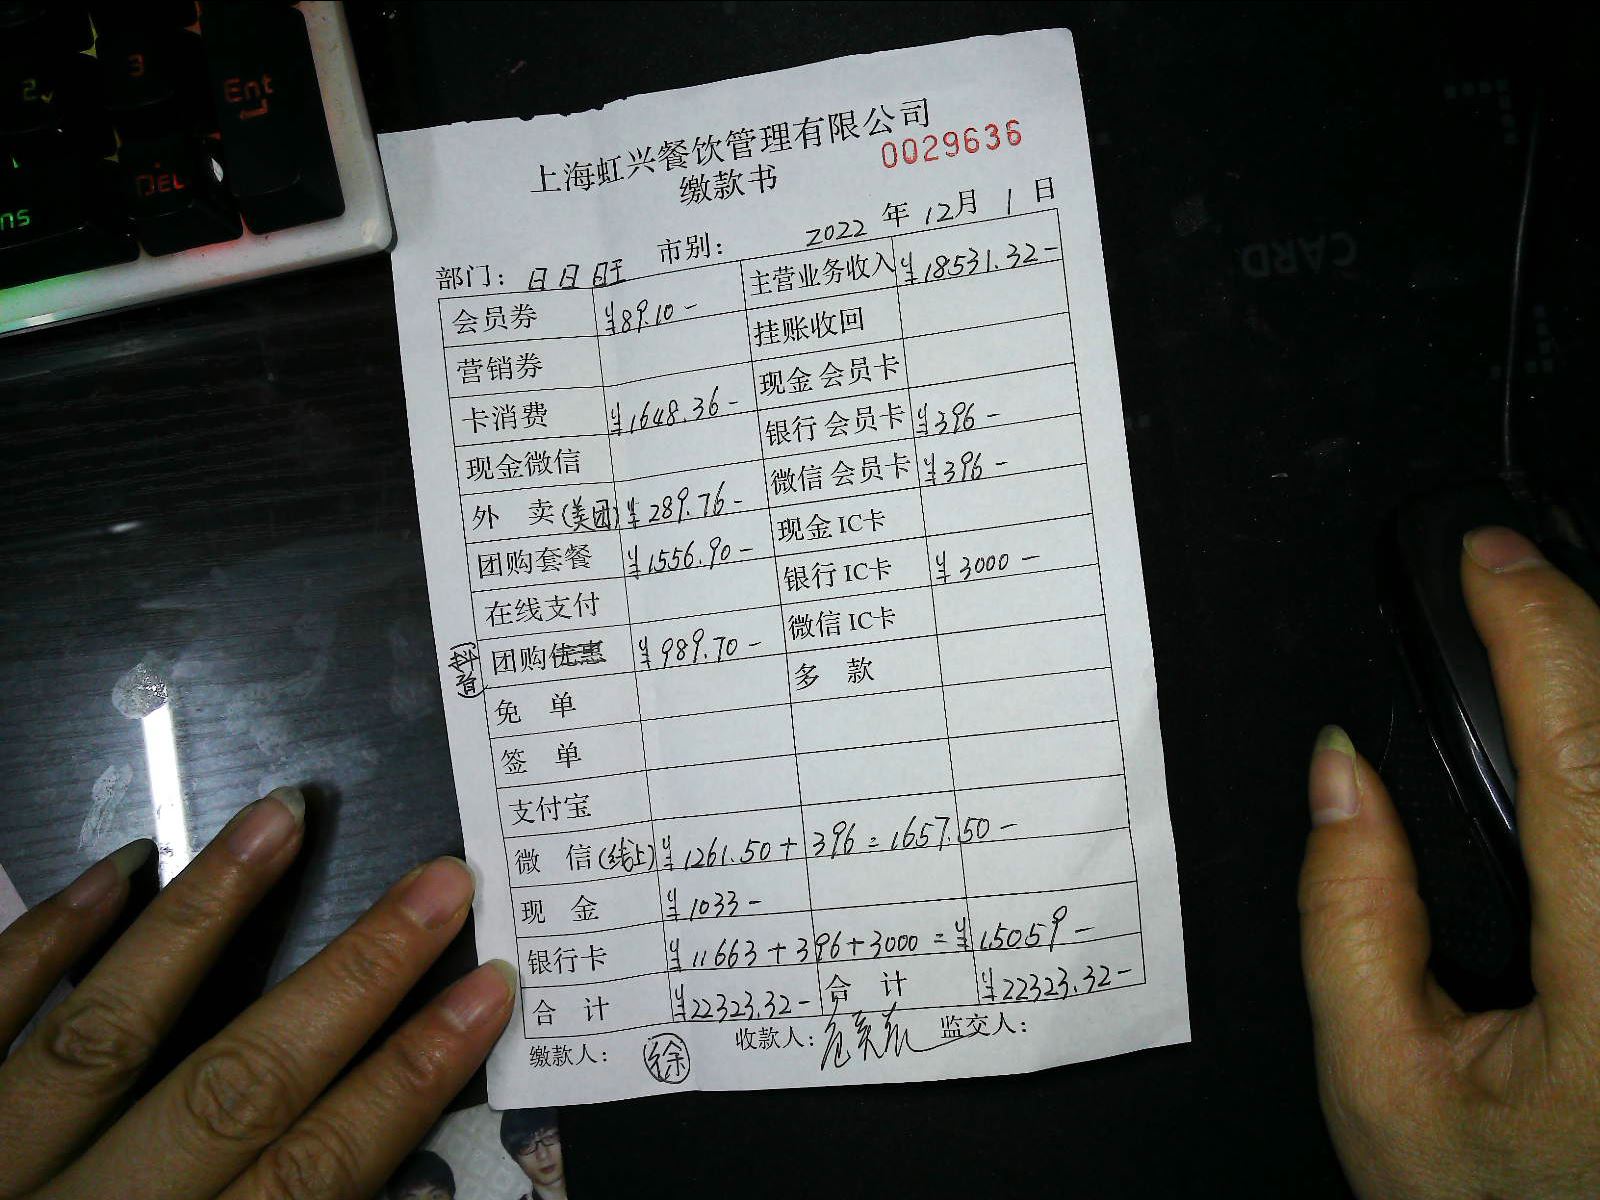 2
3
Ent
DEL
ns
CARD
上海虹兴餐饮管理有限公司
0029636
缴款书
部门：日日旺 市别： 2022 年 12月 1 日
会员券 ¥89.10- 主营业务收入 ¥18531.32-
营销券 挂账收回
卡消费 ¥1648.36- 现金 会员卡
现金微信 银行 会员卡 ¥396-
外 卖(美团) ¥289.76- 微信 会员卡 ¥396-
团购套餐 ¥1556.90- 现金 IC卡
在线支付 银行 IC卡 ¥3000-
(抖音) 团购优惠 ¥989.70- 微信 IC卡
免 单 多 款
签 单
支付宝
微 信(线上) ¥1261.50+396=1657.50-
现 金 ¥1033-
银行卡 ¥11663+396+3000=¥15059-
合 计 ¥22323.32- 合 计 ¥22323.32-
缴款人： 徐 收款人： 监交人：